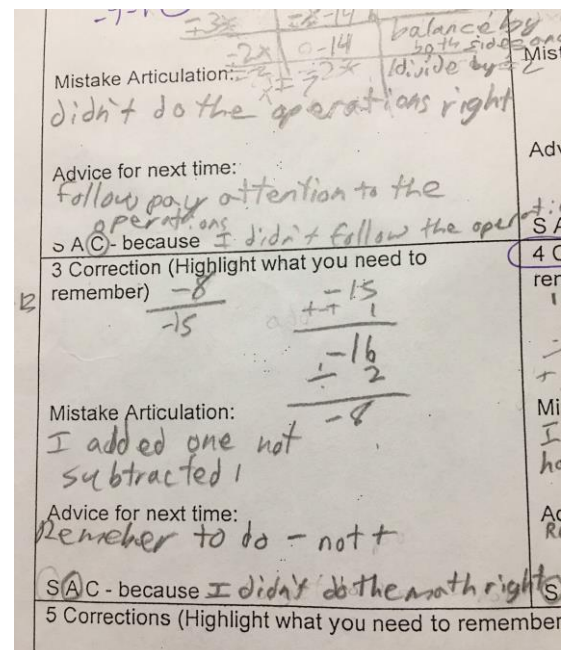 balance by
-14
both sides and
Mist
Mistake Articulation:
divide by
didn't do the operations right
Adv
Advice for next time:
follow pay attention to the
operations
S A C - because I didn't follow the operati
S A
3 Correction (Highlight what you need to
remember)
4 C
rer
-8
-15
-15
1
-16
÷ 2
-8
Mistake Articulation:
I added one not
subtracted 1
Mi
I
ho
Advice for next time:
Remeber to do - not +
Ad
R
S A C - because I didn't do the math right
S
5 Corrections (Highlight what you need to remember